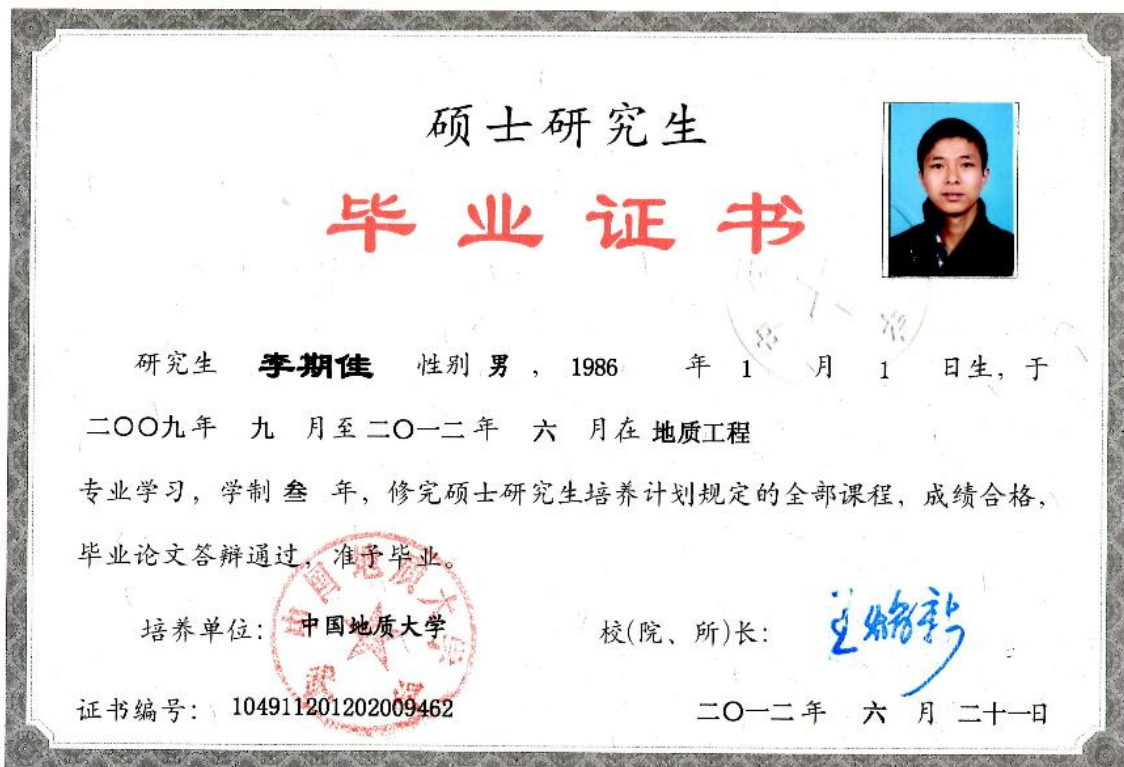 硕士研究生
毕业证书
研究生 李期佳 性别 男 , 1986 年 1 月 1 日生, 于
二〇〇九年 九 月至二〇一二年 六 月在 地质工程
专业学习, 学制 叁 年, 修完硕士研究生培养计划规定的全部课程, 成绩合格,
毕业论文答辩通过, 准予毕业。
中国地质大学
武汉
培养单位: 中国地质大学 校(院、所)长:
证书编号: 104911201202009462 二〇一二年 六 月 二十一日